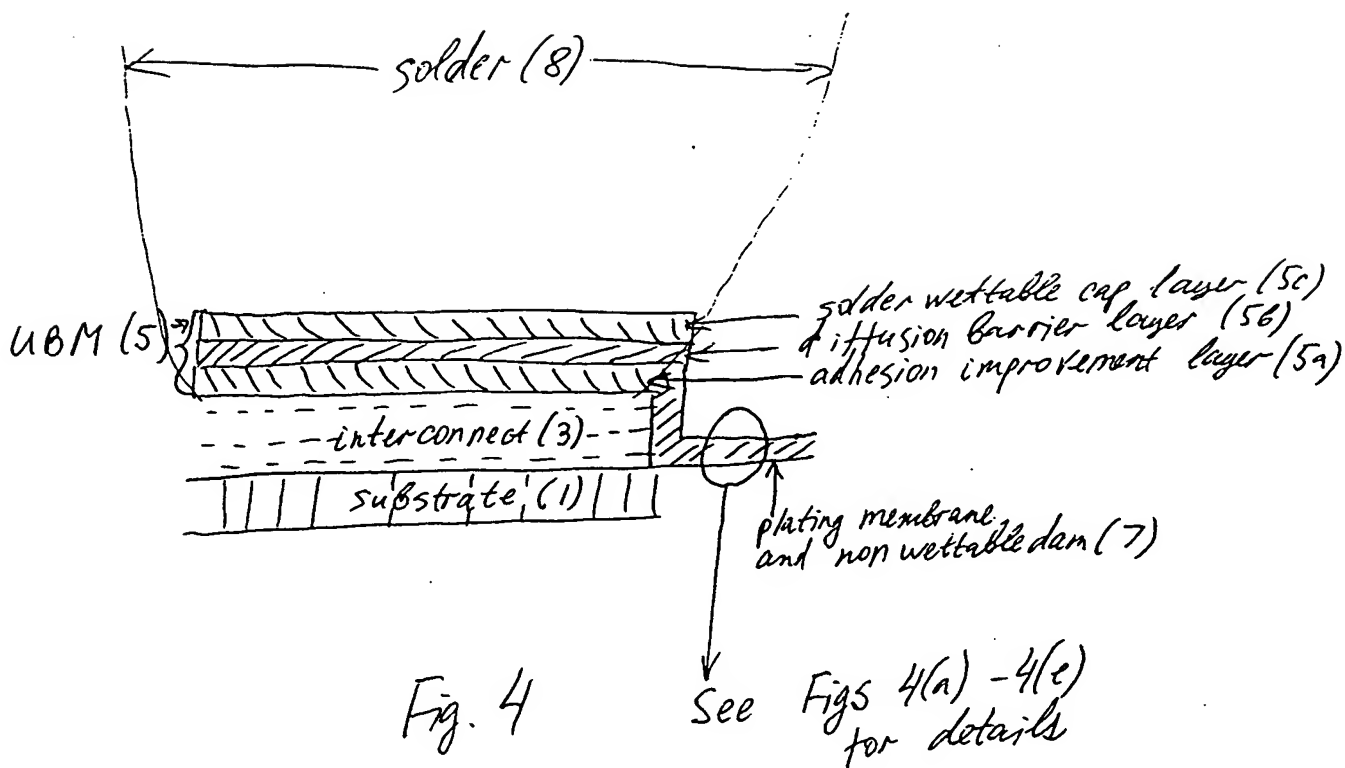 solder (8)
UBM (5)
solder wettable cap layer (5c)
diffusion barrier layer (5b)
adhesion improvement layer (5a)
interconnect (3)
substrate (1)
plating membrane
and non wettable dam (7)
Fig. 4
See Figs 4(a) - 4(e)
for details